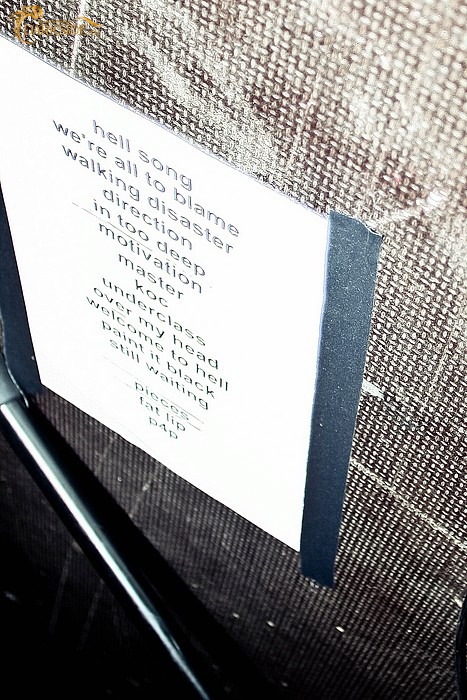 hell song
we're all to blame
walking disaster
direction
in too deep
motivation
master
koc
underclass
over my head
welcome to hell
paint it black
still waiting
pieces
fat lip
p4p